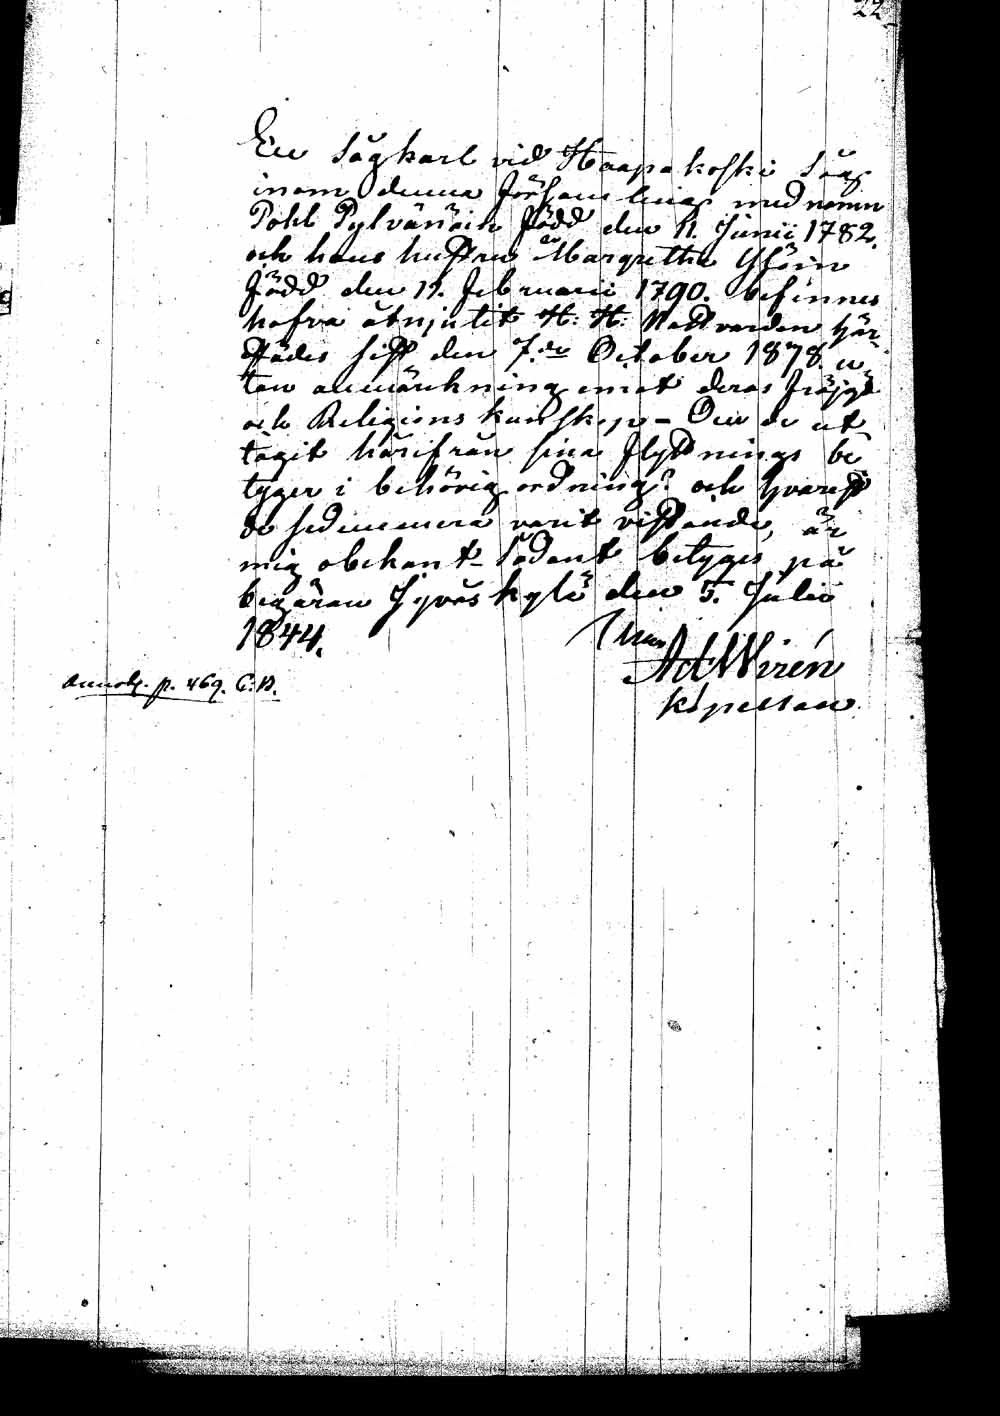 22
En Sågkarl vid Haapakoski Såg
inom denna Församling med namn
Pohl Pylvänäin född den 11. Junii 1782.
och hans hustru Margretha
född den 19. Februarii 1790. befinnes
hafva åtnjutit H: H: Nattvarden här-
städes sist den 7.de October 1878. u
tan anmärkning emot deras fräjgd
och Religions kunskap – Om de ut
tagit härifrån sina flyttnings be
tyger i behörig ordning? och hvarest
de sedermera varit vistande, är
mig obekant – Sådant betyges på
begäran Jyväskylä den 5. Julii
1844.
Ad Wirén
Kapellan.
Annot. p. 469. C. B.